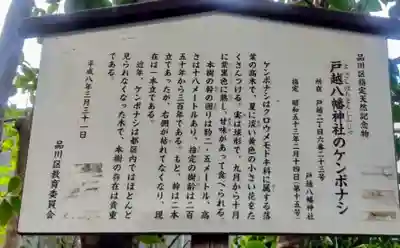 品川区指定天然記念物
戸越八幡神社のケンポナシ
所在 戸越二丁目六番二十三号 戸越八幡神社
指定 昭和五十三年二月十四日(第十五号)
ケンポナシはクロウメモドキ科に属する落
葉の高木で、夏に淡い黄色の小さい花をた
くさんつける。実は球形で、九月から十月
に紫黒色に熟し、甘味があって食べられる。
本樹の幹の囲りは約二・五メートル、高
さは十八メートルあり、推定の樹齢は二百
五十年から三百年である。もと、幹は二本
立であったが、右側が枯れてなくなり、現
在は一本立である。
近年、ケンポナシは都区内ではほとんど
見られなくなった木で、本樹の存在は貴重
である。
平成八年三月三十一日
品川区教育委員会